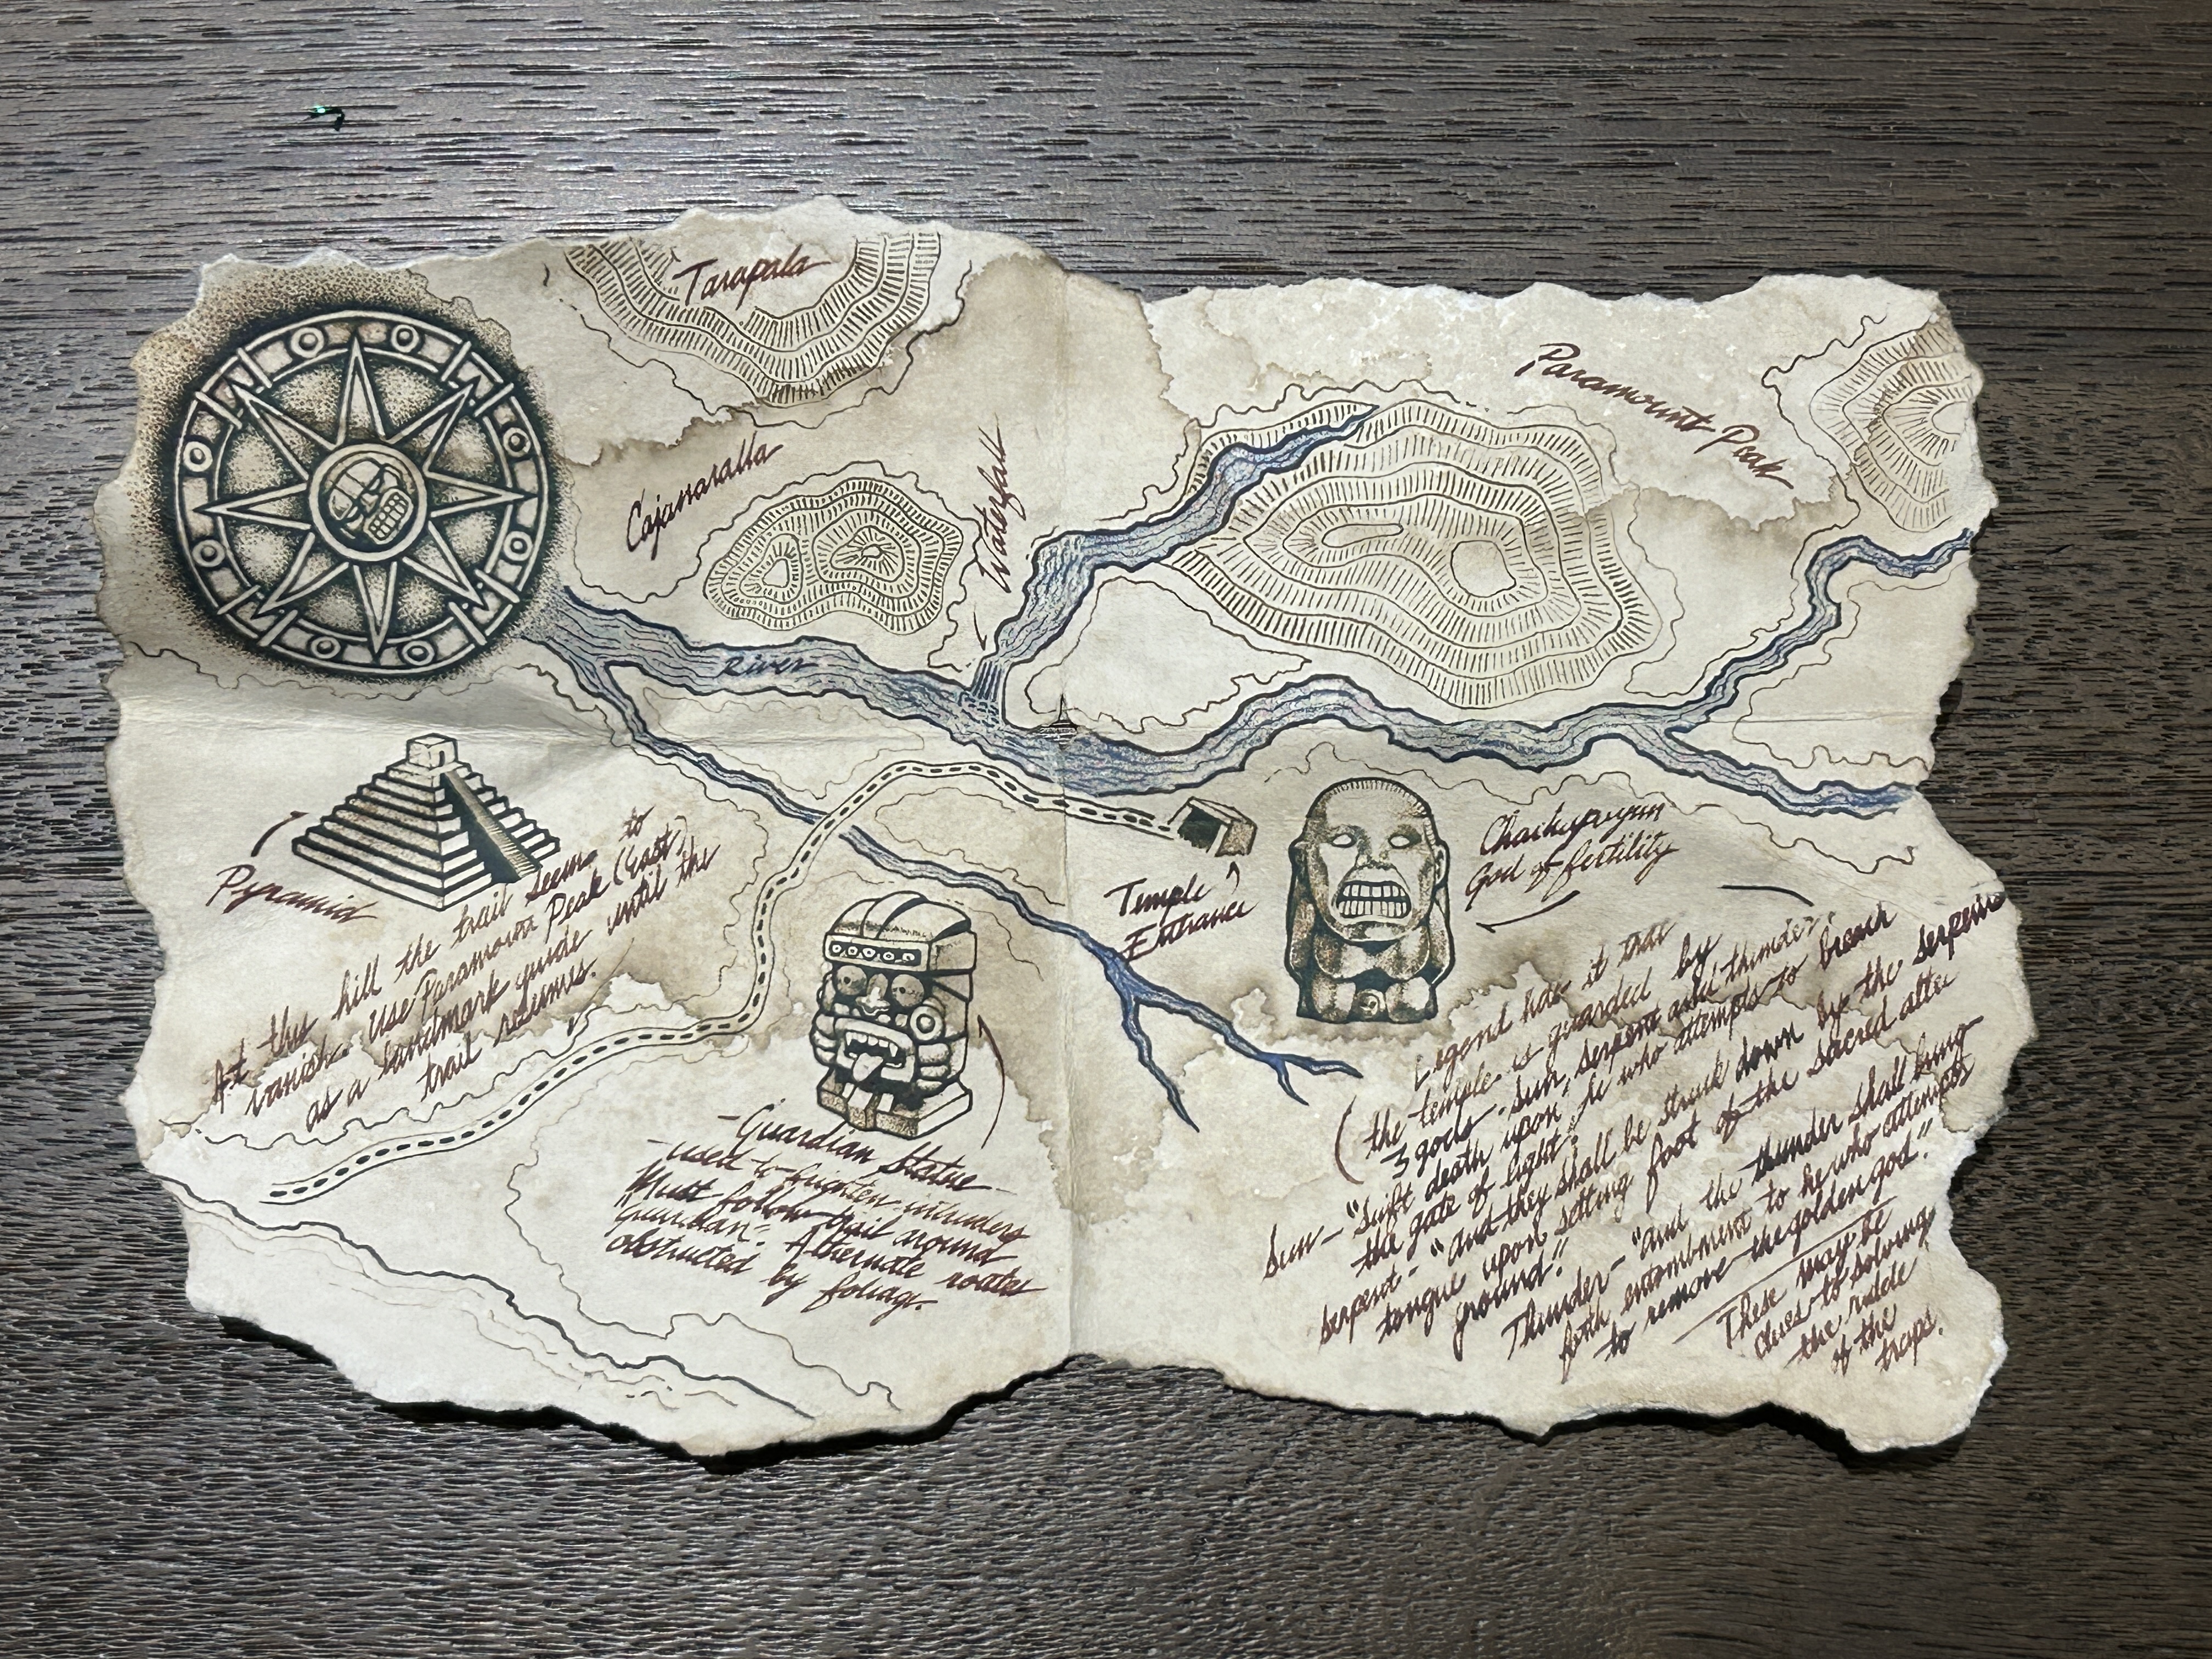 Tarapala
Paramount Peak
Waterfall
River
Pyramid
At this hill the trail seems to
vanish. Use Paramount Peak (East)
as a landmark guide until the
trail resumes.
Temple
Entrance
God of fertility
- Guardian Statue -
- used to frighten intruders
Must follow trail around
Guardian - Alternate routes
obstructed by foliage.
Legend has it that
the temple is guarded by
3 gods - sun, serpent and thunder.
Sun - "Swift death upon he who attempts to breach
the gate of light."
serpent - "and they shall be struck down by the serpents
tongue upon setting foot of the sacred alter
ground."
Thunder - "and the thunder shall bring
forth entombment to he who attempts
to remove the golden god."
These may be
clues to solving
the riddle
of the
traps.